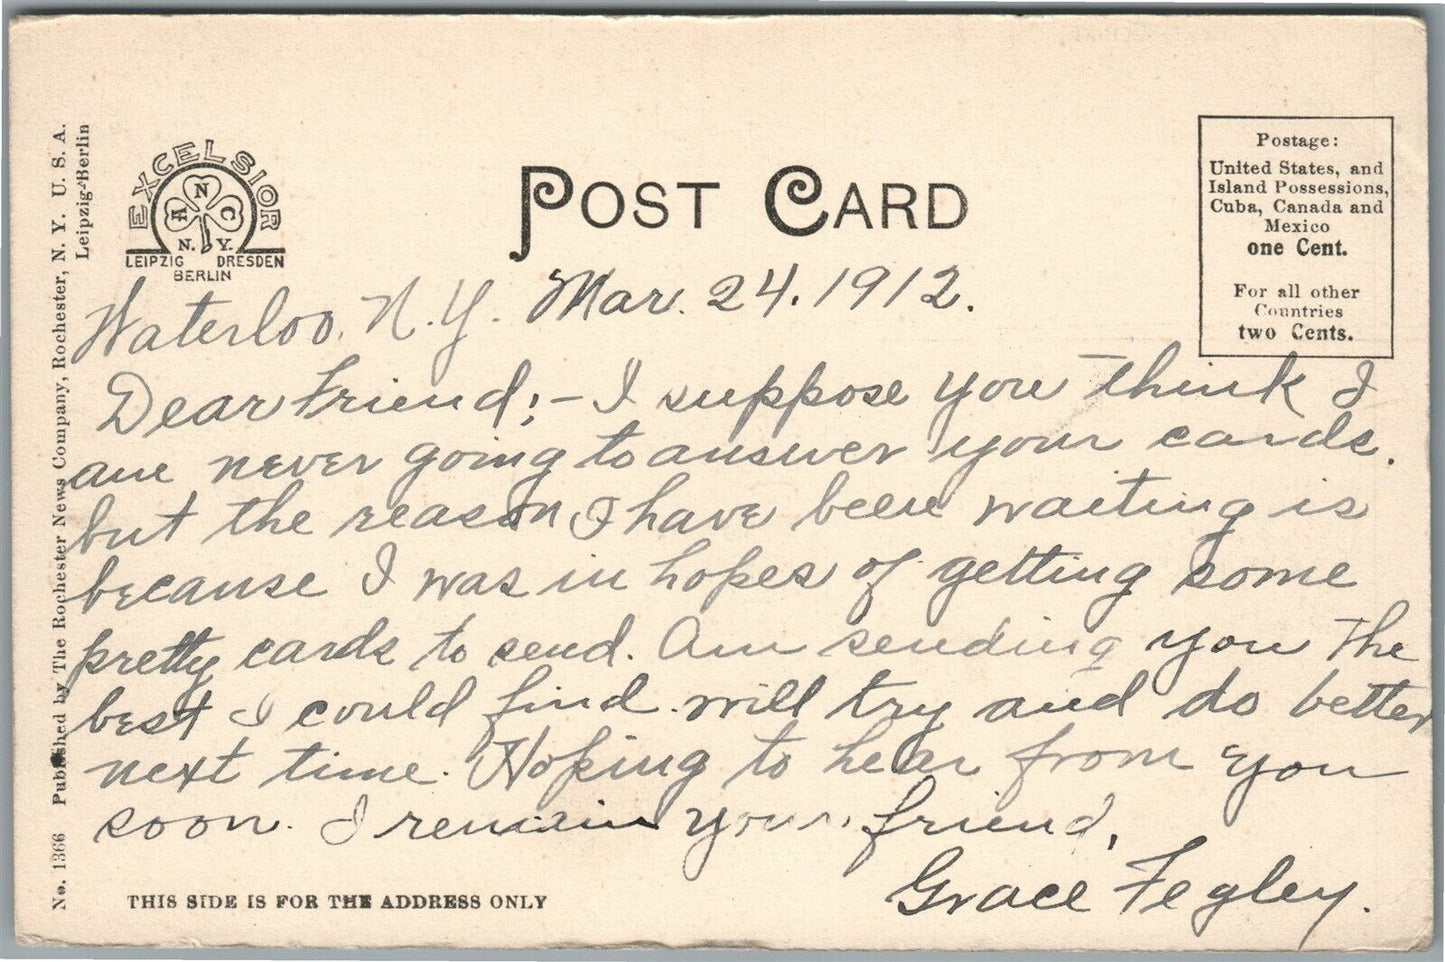 No. 1366 Published by The Rochester News Company, Rochester, N. Y. U. S. A.
Leipzig-Berlin
EXCELSIOR
A N C
N. Y.
LEIPZIG DRESDEN
BERLIN
POST CARD
Postage:
United States, and
Island Possessions,
Cuba, Canada and
Mexico
one Cent.
For all other
Countries
two Cents.
Waterloo. N.Y. Mar. 24. 1912.
Dear Friend;- I suppose you think I
am never going to answer your cards.
but the reason I have been waiting is
because I was in hopes of getting some
pretty cards to send. Am sending you the
best I could find. will try and do better
next time. Hoping to hear from you
soon. I remain your friend,
Grace Fegley.
THIS SIDE IS FOR THE ADDRESS ONLY